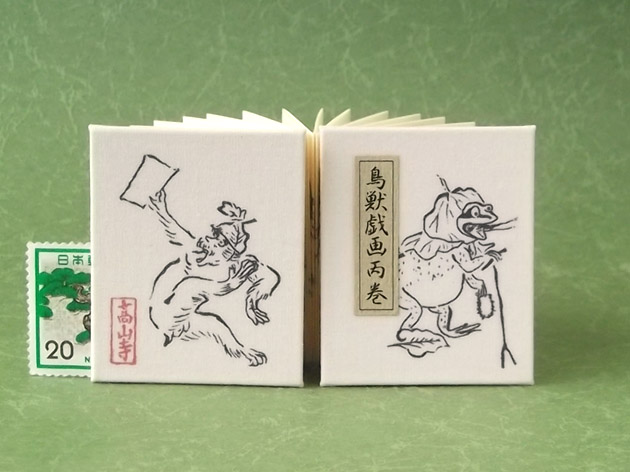 鳥獣戯画丙巻
高山寺
日本郵
20
N